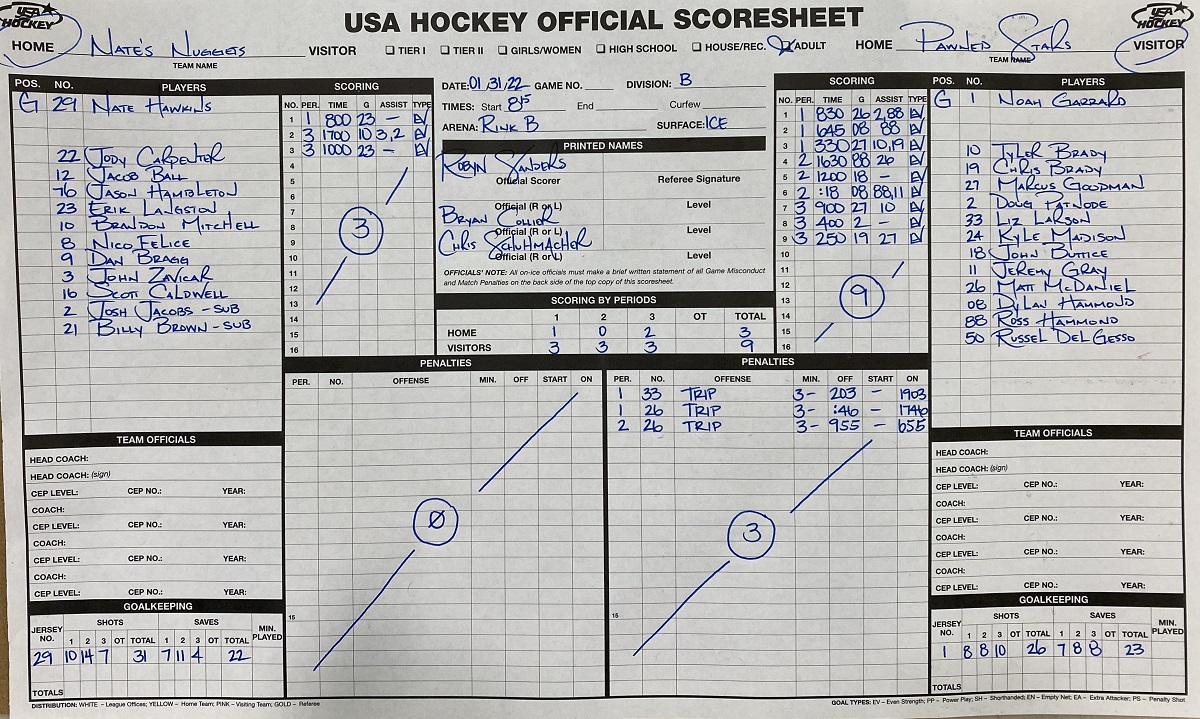 USA HOCKEY OFFICIAL SCORESHEET
USA HOCKEY
USA HOCKEY
HOME NATE'S NUGGETS VISITOR
TEAM NAME
TIER I TIER II GIRLS/WOMEN HIGH SCHOOL HOUSE/REC. ADULT
HOME PAWNED STARS VISITOR
TEAM NAME
POS. NO. PLAYERS
G 29 NATE HAWKINS
22 JODY CARPENTER
12 JACOB BALL
76 JASON HAMBLETON
23 ERIK LANGSTON
10 BRANDON MITCHELL
8 NICO FELICE
9 DAN BRAGG
3 JOHN ZAVICAR
16 SCOTT CALDWELL
2 JOSH JACOBS - SUB
21 BILLY BROWN - SUB
SCORING
NO. PER. TIME G ASSIST TYPE
1 1 800 23 - EV
2 3 1700 10 3,2 EV
3 3 1000 23 - EV
4
5
6
7
8
9
10
11
12
13
14
15
16
3
DATE: 01/31/22 GAME NO. DIVISION: B
TIMES: Start 815 End Curfew
ARENA: RINK B SURFACE: ICE
PRINTED NAMES
ROBYN SANDERS
Official Scorer Referee Signature
Official (R or L) Level
BRYAN COLLIER
Official (R or L) Level
CHRIS SCHUHMACHER
Official (R or L) Level
OFFICIALS' NOTE: All on-ice officials must make a brief written statement of all Game Misconduct
and Match Penalties on the back side of the top copy of this scoresheet.
SCORING BY PERIODS
1 2 3 OT TOTAL
HOME 1 0 2 3
VISITORS 3 3 3 9
SCORING
NO. PER. TIME G ASSIST TYPE
1 1 830 26 2,88 EV
2 1 645 08 88 EV
3 1 330 27 10,19 EV
4 2 1630 88 26 EV
5 2 1200 18 - EV
6 2 :18 08 88,11 EV
7 3 900 27 10 EV
8 3 400 2 - EV
9 3 250 19 27 EV
10
11
12
13
14
15
16
9
POS. NO. PLAYERS
G 1 NOAH GARRARD
10 TYLER BRADY
19 CHRIS BRADY
27 MARCUS GOODMAN
2 DOUG PATNODE
33 LIZ LARSON
24 KYLE MADISON
18 JOHN BUTTICE
11 JEREMY GRAY
26 MATT MCDANIEL
08 DYLAN HAMMOND
88 ROSS HAMMOND
50 RUSSEL DEL GESSO
PENALTIES
PER. NO. OFFENSE MIN. OFF START ON
Ø
15
PENALTIES
PER. NO. OFFENSE MIN. OFF START ON
1 33 TRIP 3- 203 - 1903
1 26 TRIP 3- :46 - 1746
2 26 TRIP 3- 955 - 655
3
15
TEAM OFFICIALS
HEAD COACH:
HEAD COACH: (sign)
CEP LEVEL: CEP NO.: YEAR:
COACH:
CEP LEVEL: CEP NO.: YEAR:
COACH:
CEP LEVEL: CEP NO.: YEAR:
COACH:
CEP LEVEL: CEP NO.: YEAR:
GOALKEEPING
JERSEY NO. SHOTS SAVES MIN. PLAYED
1 2 3 OT TOTAL 1 2 3 OT TOTAL
29 10 14 7 31 7 11 4 22
TOTALS
TEAM OFFICIALS
HEAD COACH:
HEAD COACH: (sign)
CEP LEVEL: CEP NO.: YEAR:
COACH:
CEP LEVEL: CEP NO.: YEAR:
COACH:
CEP LEVEL: CEP NO.: YEAR:
COACH:
CEP LEVEL: CEP NO.: YEAR:
GOALKEEPING
JERSEY NO. SHOTS SAVES MIN. PLAYED
1 2 3 OT TOTAL 1 2 3 OT TOTAL
1 8 8 10 26 7 8 8 23
TOTALS
DISTRIBUTION: WHITE – League Offices; YELLOW – Home Team; PINK – Visiting Team; GOLD – Referee
GOAL TYPES: EV – Even Strength; PP – Power Play; SH – Shorthanded; EN – Empty Net; EA – Extra Attacker; PS – Penalty Shot